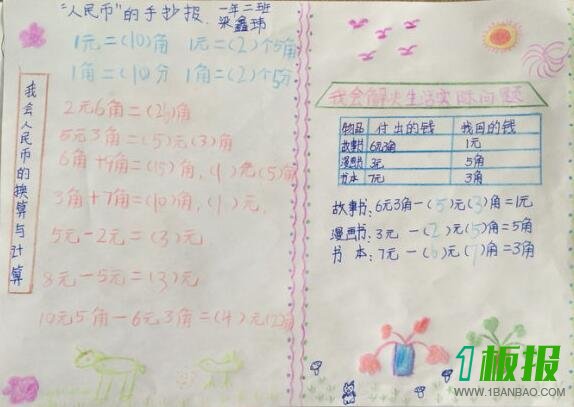 "人民币"的手抄报.
一年二班
梁鑫玮
1元=(10)角 1元=(2)个5角
1角=(10分 1角=(2)个5分
我会人民币的换算与计算
2元6角=(26)角
5元3角=(5)元(3)角
6角+9角=(15)角,(1)元(5)角
3角+7角=(10)角,(1)元.
5元-2元=(3)元
8元-5元=(3)元
10元5角-6元3角=(4)元(2)角
我会解决生活实际问题
物品 付出的钱 找回的钱
故事书 6元3角 1元
漫画书 3元 5角
书本 7元 3角
故事书:6元3角-(5)元(3)角=1元
漫画书:3元-(2)元(5)角=5角
书本:7元-(6)元(7)角=3角
1板报
WWW.1BANBAO.COM